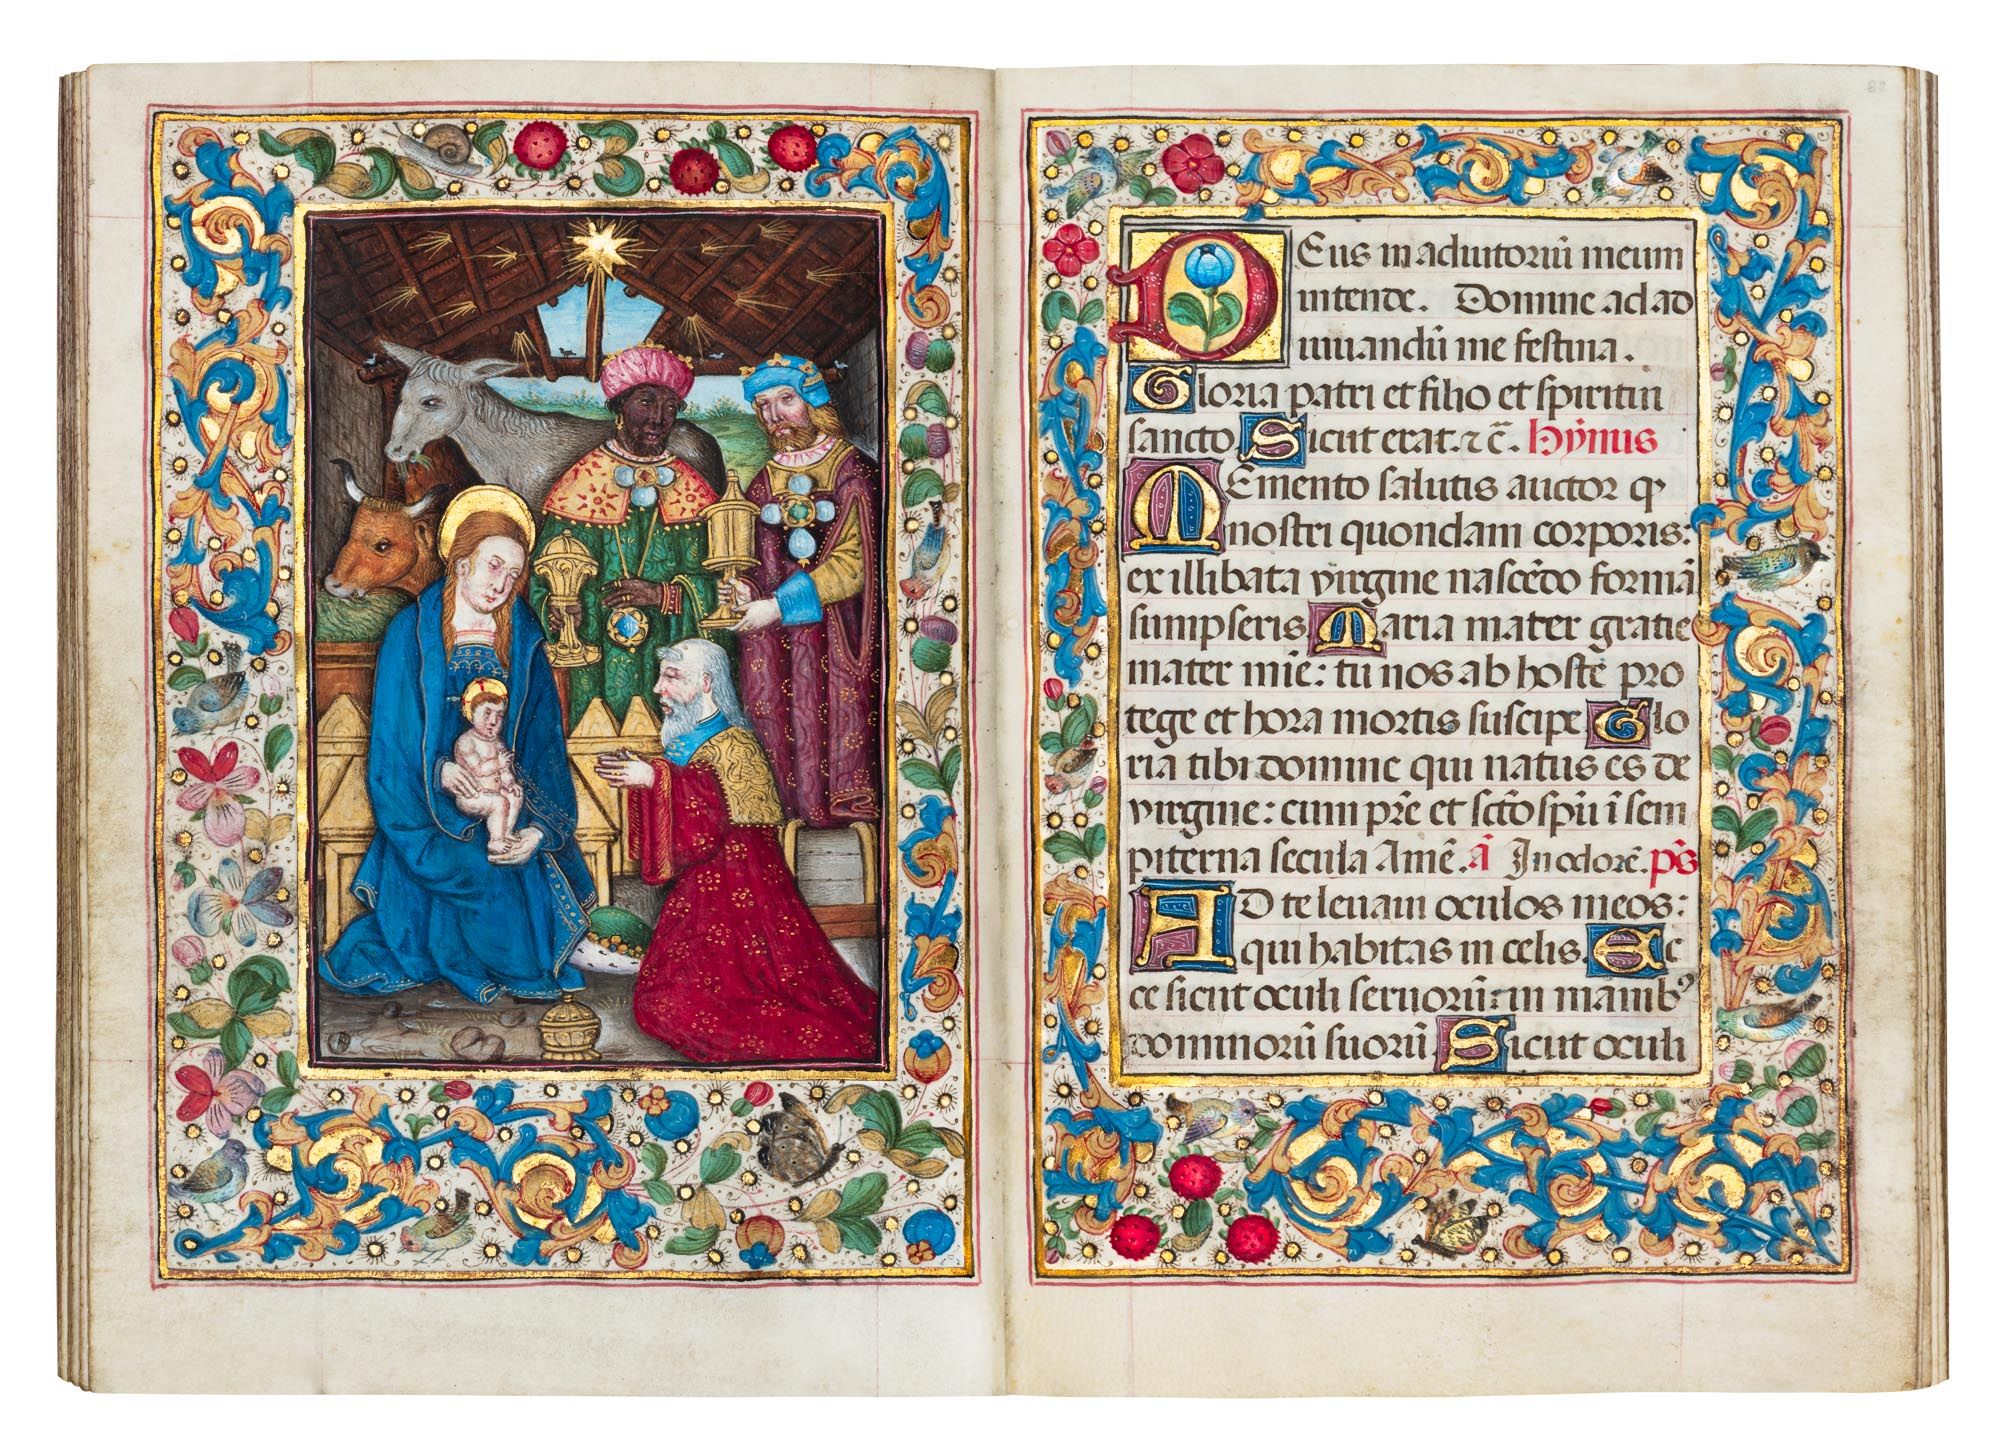 Deus in adiutoriū meum
intende. Domine ad ad
iuuandū me festina.
Gloria patri et filio et spiritui
sancto Sicut erat. ⁊ c̄. hȳnus
Memento salutis auctor ꝙ
nostri quondam corporis:
ex illibata virgine nascēdo formā
sumpseris Maria mater gratie
mater mīe: tu nos ab hoste pro
tege et hora mortis suscipe Glo
ria tibi domine qui natus es de
virgine: cum pr̄e et sc̄to spū ī sem
piterna secula Amē. ā In odorē. ps̄
Ad te leuaui oculos meos:
qui habitas in celis. Ec
ce sicut oculi seruorū: in manibꝰ
dominorū suorū Sicut oculi